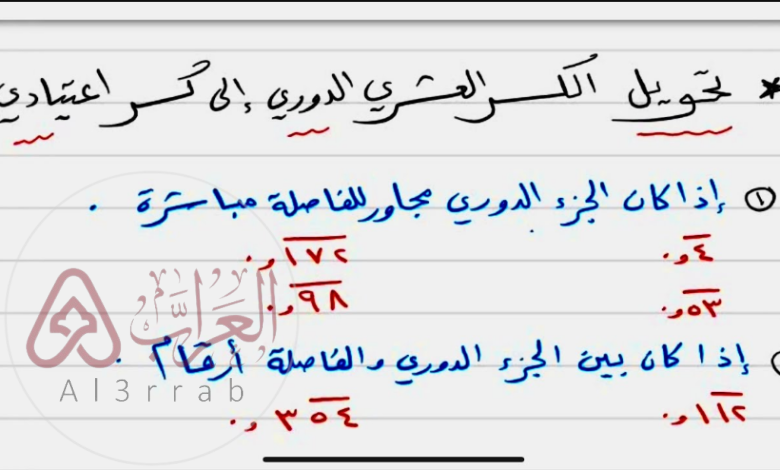 * تحويل الكسر العشري الدوري إلى كسر اعتيادي
① إذا كان الجزء الدوري مجاور للفاصلة مباشرة .
٠,٤̅ ٠,١̅٧̅٢̅
٠,٥̅٣̅ ٠,٩̅٨̅
إذا كان بين الجزء الدوري والفاصلة أرقام .
٠,١١̅٢̅ ٠,٣٥̅٤̅
العرّاب
Al3rrab